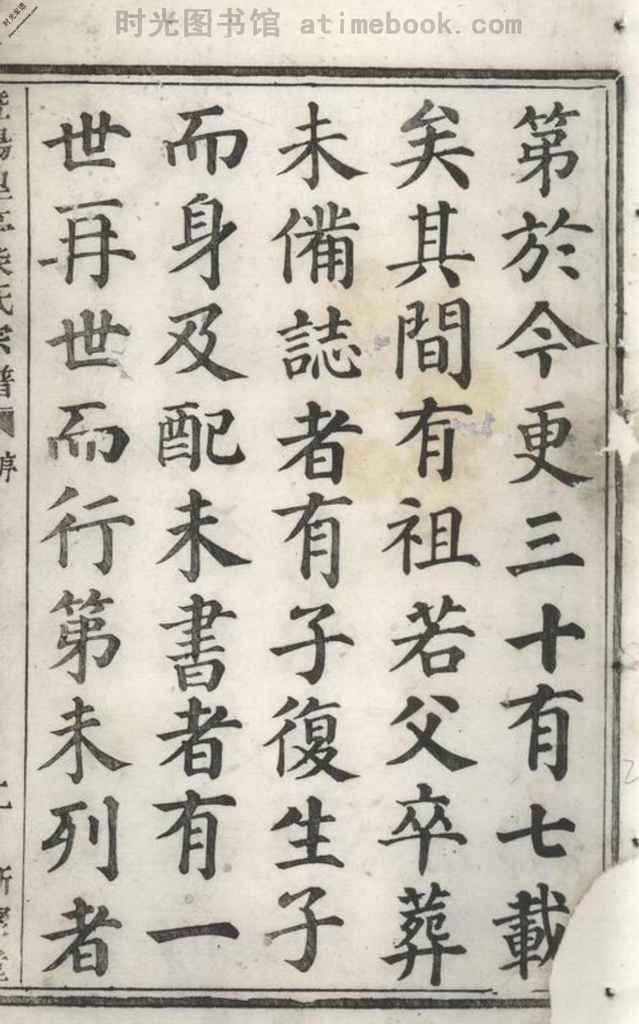 时光图书馆 atimebook.com
第於今更三十有七載
矣其間有祖若父卒葬
未備誌者有子復生子
而身及配未書者有一
世再世而行第未列者